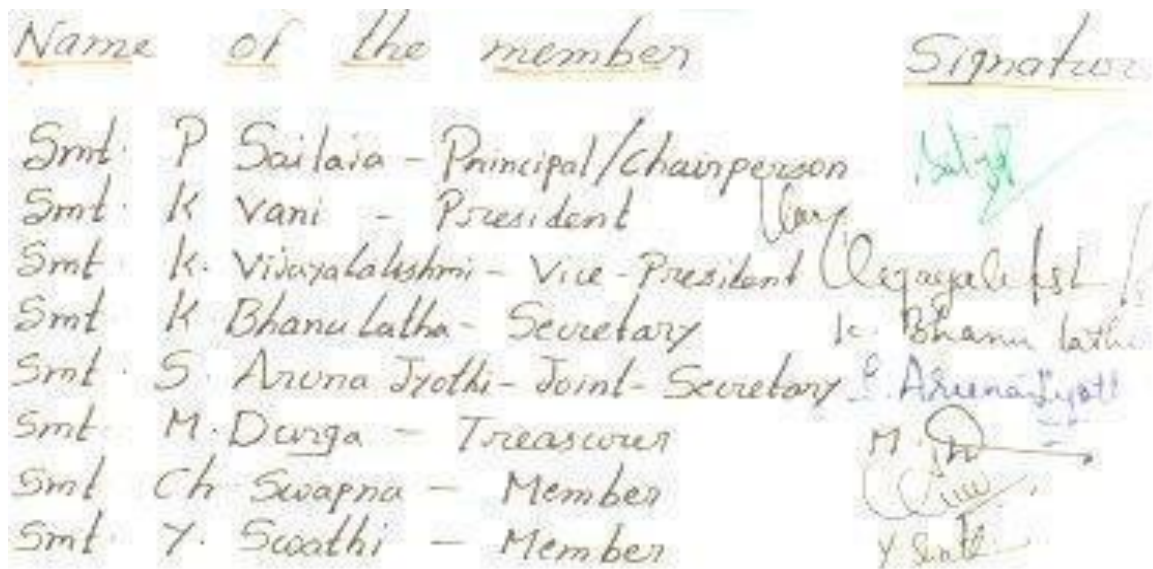 Name of the member Signature
Smt. P Sailaia - Principal/Chairperson
Smt. K Vani - President
Smt. K. Vijayalakshmi - Vice-President
Smt K Bhanulatha - Secretary K. Bhanu latha
Smt. S. Aruna Jyothi - Joint-Secretary S. Aruna Jyoti
Smt. M. Durga - Treasourer M.
Smt Ch Swapna - Member
Smt. Y. Swathi - Member Y